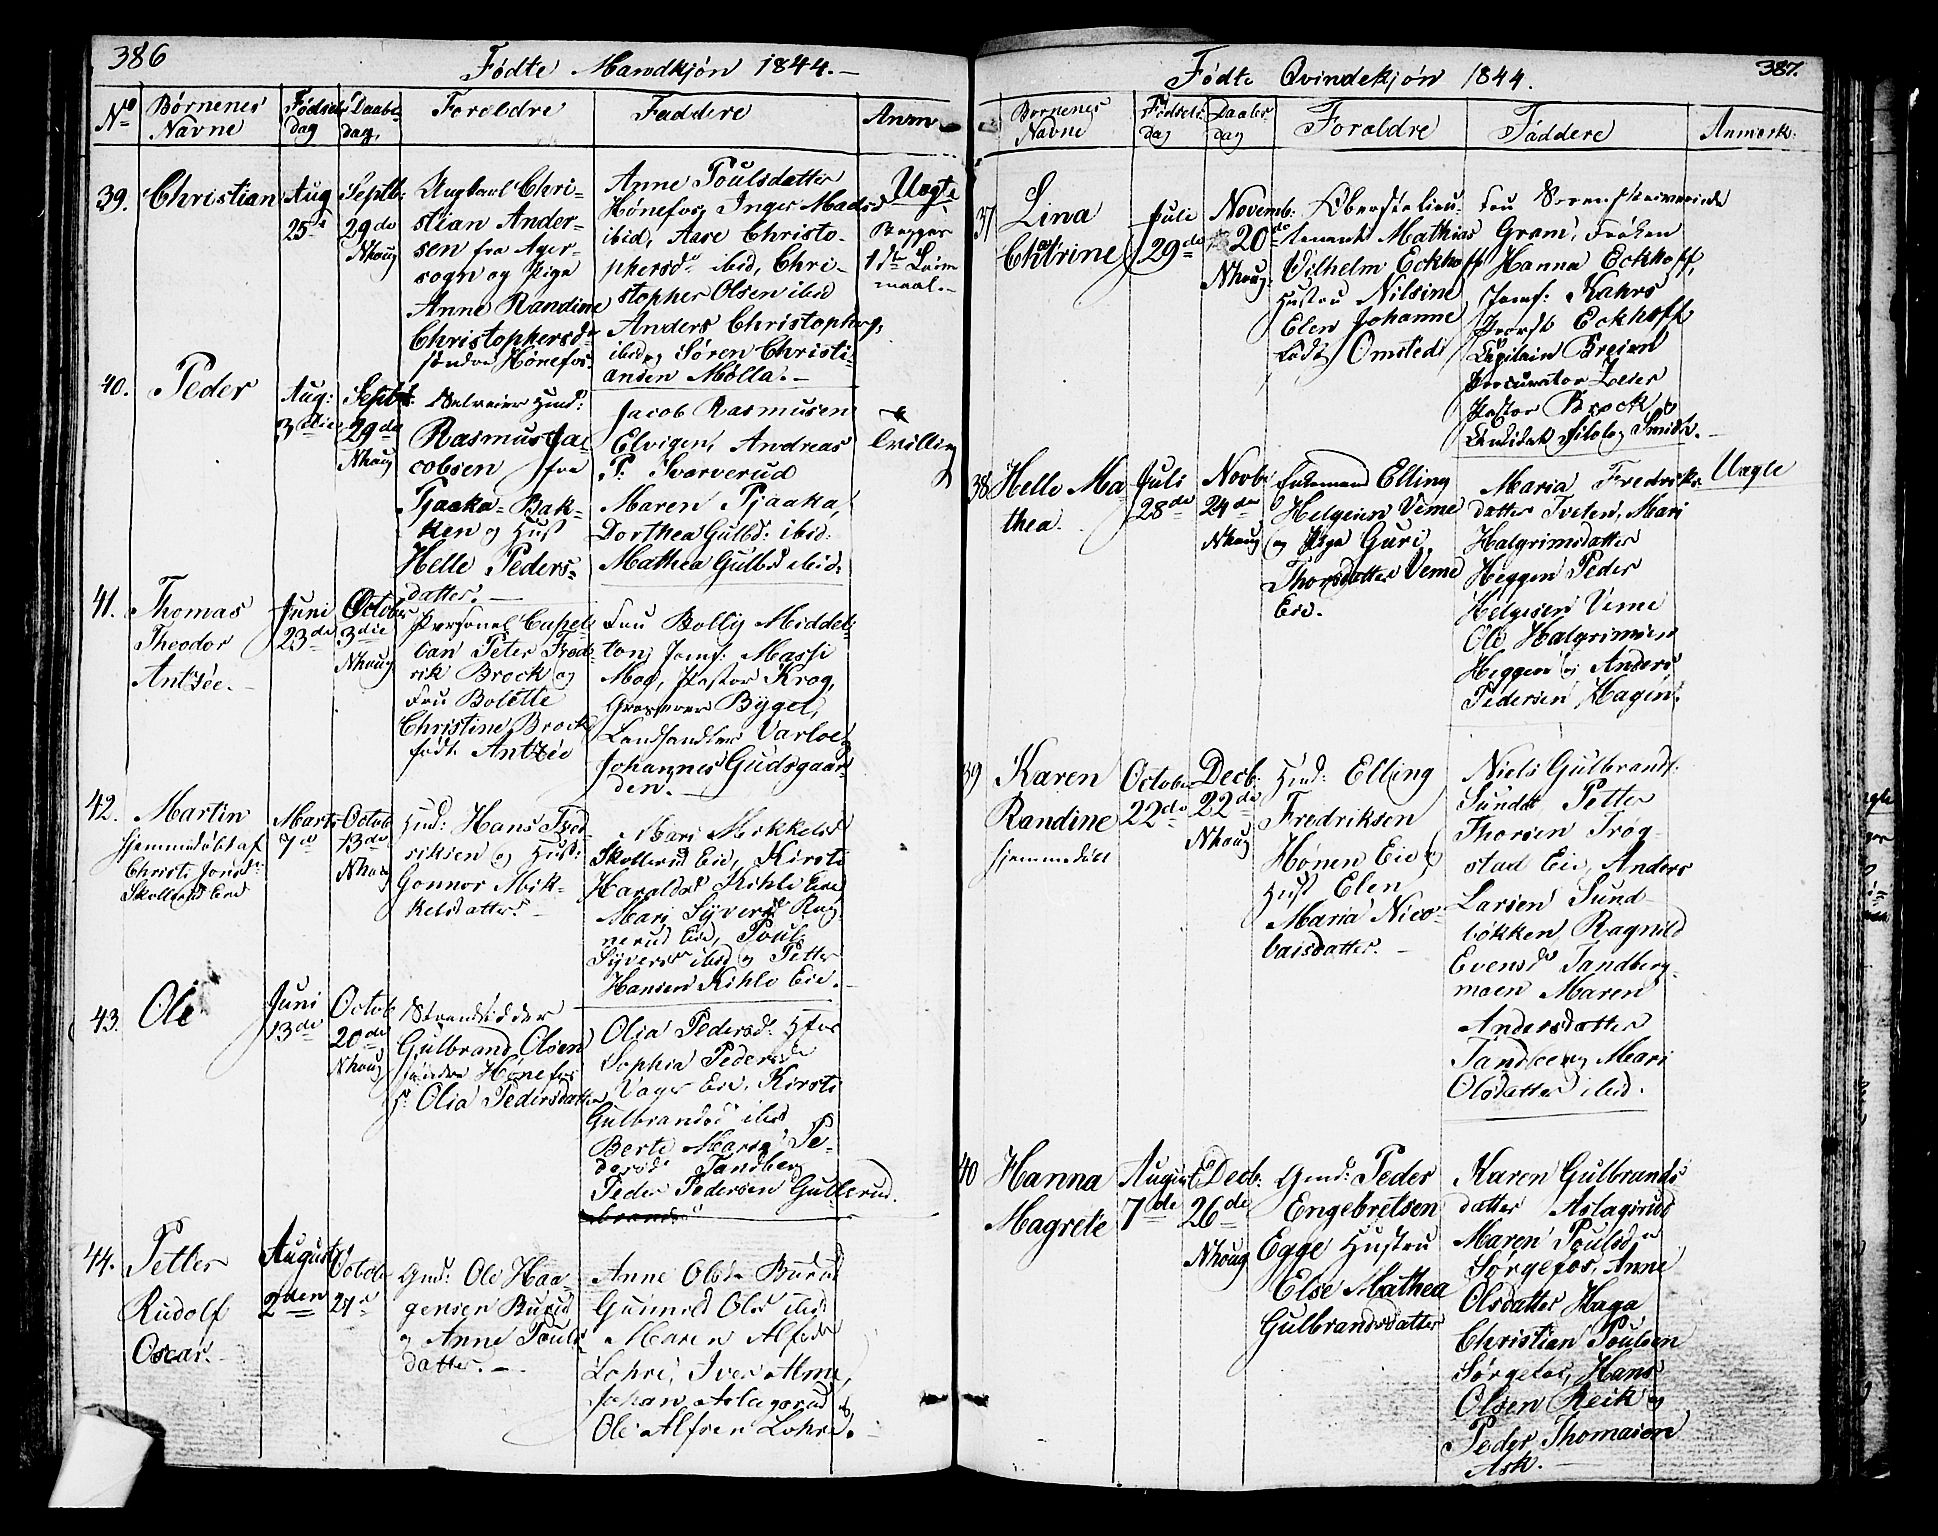 386
Fødte Mandkjøn 1844.-
No
Børnenes
Navne
Fødsels
dag
Daabs
dag.
Foraldre
Faddere
Anm
39.
Christian
Aug
25de
Septb:
29de
Nhoug
Ungkarl Chri-
stian Ander-
sen fra Ager-
sogn og Pige
Anne Randine
Christophersdr
søndre Hønefos.
Anne Poulsdatter
Hønefos, Inger Madsd
ibid, Aase Christo-
phersdr ibid, Chri-
stopher Olsen ibid
Anders Christophers,
ibid og Søren Christi-
ansen Mølla.-
Uægte
Begges
1ste Leier
maal.-
40.
Peder
Aug:
3die
Septb:
29de
Nhoug
Selveier Hmd:
Rasmus Ja-
cobsen fra
Tjaaka-Bak-
ken og Hust
Helle Peders-
datter.-
Jacob Rasmusen
Elvigen, Andreas
P. Svarverud
Maren Tjaaka,
Dorthea Gulbd: ibid:
Mathea Gulbd ibid.
Tvilling
41.
Thomas
Theodor
Antzée.-
Juni
23de
Octobr
3die
Nhoug
Personel Capel-
lan Peter Fred-
rik Brock og
Fru Bolette
Christine Brock
født Antzée
Fru Bolly Middel-
ton, Jomf: Massi
Moe, Pastor Krog,
Grosserer Bygel,
Landhandler Varloe
Johannes Gudsgaar-
den.-
42.
Martin
hjemmedøbt af
Christi Jonsdr
Skollerud Eie
Marts
7de
Octob
13de
Nhoug
Hmd: Hans Fred-
riksen og Hust:
Gonnor Mik-
kelsdatter.-
Mari Mikkelsd
Skollerud Eie, Kirsti
Haraldsd Kihle Eie
Mari Syversd Rag-
nerud Eie, Poul
Syversen ibid og Petter
Hansen Kihle Eie.-
43.
Ole
Juni
13de
Octob
20de
Nhoug
Strandsidder
Gulbrand Olsen
søndre Hønefos
H. Olia Pedersdatter
Olia Pedersd: Hfos
Sophia Pedersd
Vager Eie, Kirsti
Gulbrandsd ibid
Berte Maria Pe-
dersd Tandberg
Peder Pedersen Gullerud.
44.
Petter
Rudolf
Oscar.-
August
2den
Octob
27de
Gmd: Ole Haa-
gensen Burud
og Anne Pouls-
datter.-
Anne Olsdr Burud
Gunnild Olsd ibid
Maren Alfsdr
Lohre, Iver Alme,
Johan Aslagsrud &
Ole Alfsen Lohre.-
387.
Fødte Qvindekjøn 1844.
Børnenes
Navne
Fødsels
dag
Daabs
dag
Foraldre
Faddere
Anmerk:
37
Lina
Chatrine
Juli
29de
Novemb:
20de
Nhoug.
Oberstlieu-
tenant Mathias
Vilhelm Eckhoff
Hustru Nilsine
Elen Johanne
født Omsted
Fru Sorenskriverinde
Gram, Frøken
Hanna Eckhoff,
Jomf: Rahrs
Provst Eckhoff,
Capitain Breien
Procurator Leser
Pastor Brock &
Candidat Filolog Smith.-
38
Helle Ma-
thea.
Juli
28de
Novb:
24de
Nhoug
Enkemand Elling
Helgesen Veme
og Pige Guri
Thorsdatter Veme
Eie.
Maria Fredriks-
datter Tveten, Mari
Halgrimsdatter
Heggen Peder
Helgesen Veme
Ole Halgrimsen
Heggen og Anders
Pedersen Hagen.
Uægte
39
Karen
Randine
hjemmedøbt
October
22de
Decb:
22de
Nhoug
Hmd: Elling
Fredriksen
Hønen Eie og
Hust Elen
Maria Nico-
laisdatter.-
Niels Gulbrands.
Sundet Petter
Thorsen Trøg-
stad Eie, Anders
Larsen Sund-
løkken Ragnild
Evensd Tandberg-
moen Maren
Andersdatter
Tandberg Mari
Olsdatter ibid.
40
Hanna
Magrete
August
7de
Decb:
26de
Nhoug
Gmd: Peder
Engebretsen
Egge Hustru
Else Mathea
Gulbrandsdatter
Karen Gulbrands
datter Aslagsrud
Maren Poulsdr
Sørgefos, Anne
Olsdatter Haga
Christian Poulsen
Sørgefos, Hans
Olsen Reik og
Peder Thomasen
Ask.-